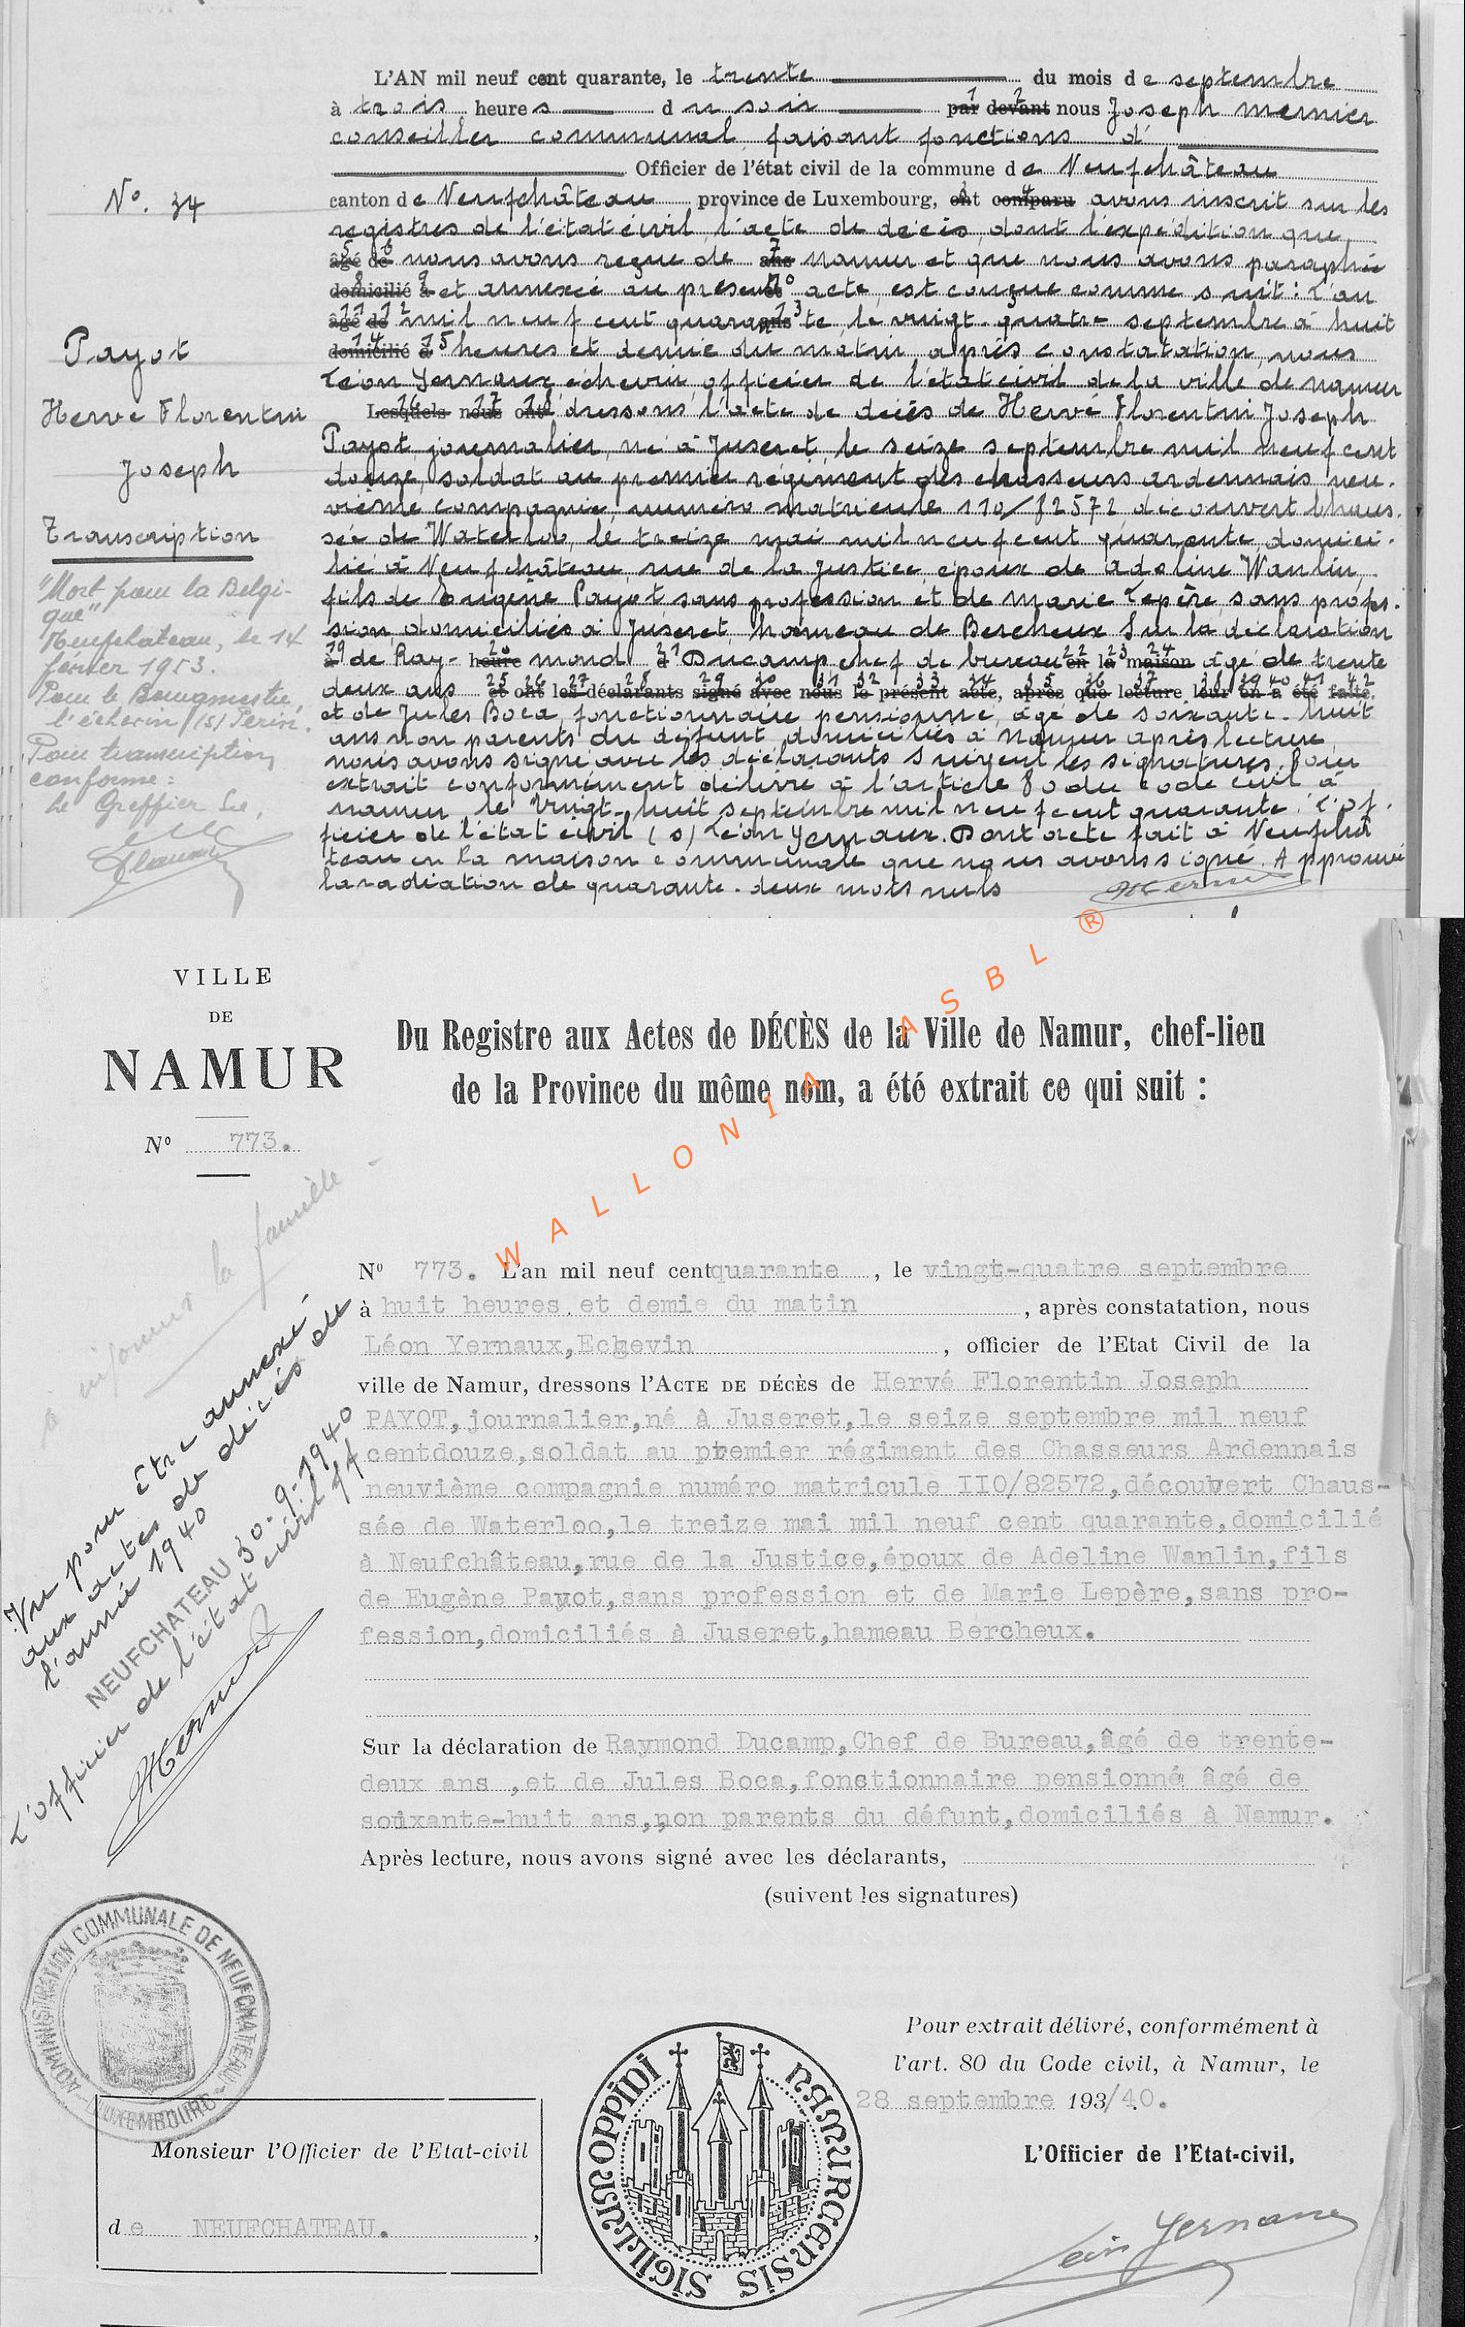 L'AN mil neuf cent quarante, le trente du mois de septembre
à trois heures du soir par 1 devant 2 nous Joseph Mernier
conseiller communal, faisant fonctions d'
Officier de l'état civil de la commune de Neufchâteau
canton de Neufchâteau province de Luxembourg, ont 3 comparu 4 avons inscrit sur les
registres de l'état civil, l'acte de décès, dont l'expédition que
âgé 5 de 6 nous avons reçue de ans 7 Namur et que nous avons paraphée
domicilié 8 à 9 et annexée au présent 10 acte, est conçue comme suit : L'an
âgé 11 de 12 mil neuf cent quarante ans 13 le vingt-quatre septembre à huit
domicilié 14 à 15 heures et demie du matin après constatation, nous
Léon Yernaux, échevin, officier de l'état civil de la ville de Namur
Lesquels 16 nous 17 ont 18 dressons l'acte de décès de Hervé Florentin Joseph
Payot, journalier, né à Juseret, le seize septembre mil neuf cent
douze, soldat au premier régiment des chasseurs ardennais neu-
vième compagnie, numéro matricule 110/82572 découvert Chaus-
sée de Waterloo, le treize mai mil neuf cent quarante, domici-
lié à Neufchâteau, rue de la Justice, époux de Adeline Wanlin,
fils de Eugène Payot sans profession et de Marie Lepère sans profes-
sion, domiciliés à Juseret, hameau de Bercheux Sur la déclaration
à 19 de Ray- heure 20 mond à 21 Ducamp chef de bureau en 22 la 23 maison 24 âgé de trente
deux ans et 25 ont 26 les 27 déclarants 28 signé 29 avec 30 nous 31 le 32 présent 33 acte 34, après 35 que 36 lecture 37 leur 38 en 39 a 40 été 41 faite 42.
et de Jules Boca, fonctionnaire pensionné, âgé de soixante-huit
ans non parents du défunt domiciliés à Namur après lecture,
nous avons signé avec les déclarants suivent les signatures. Pour
extrait conformément délivré à l'article 80 du code civil à
Namur, le vingt-huit septembre mil neuf cent quarante. L'of-
ficier de l'état civil (s) Léon Yernaux. Dont acte fait à Neufchâ
teau en la maison communale que nous avons signé. Approuvé
la radiation de quarante-deux mots nuls
JMernier
No. 34
Payot
Hervé Florentin
Joseph
Transcription
"Mort pour la Belgi-
que"
Neufchateau, le 14
février 1953.
Pour le Bourgmestre,
l'échevin (s)
Pour transcription
conforme :
Le Greffier
WALLONIA ASBL ®
VILLE
DE
NAMUR
No 773.
Du Registre aux Actes de DÉCÈS de la Ville de Namur, chef-lieu
de la Province du même nom, a été extrait ce qui suit :
à informer la famille
Vu pour être annexé
aux actes de décès de
l'année 1940
NEUFCHATEAU 30-9-1940
L'officier de l'état civil ff
JMernier
No 773. L'an mil neuf cent quarante , le vingt-quatre septembre
à huit heures et demie du matin , après constatation, nous
Léon Yernaux, Echevin , officier de l'Etat Civil de la
ville de Namur, dressons l'ACTE DE DÉCÈS de Hervé Florentin Joseph
PAYOT, journalier, né à Juseret, le seize septembre mil neuf
centdouze, soldat au premier régiment des Chasseurs Ardennais
neuvième compagnie numéro matricule IIO/82572, découvert Chaus-
sée de Waterloo, le treize mai mil neuf cent quarante, domicilié
à Neufchâteau, rue de la Justice, époux de Adeline Wanlin, fils
de Eugène Payot, sans profession et de Marie Lepère, sans pro-
fession, domiciliés à Juseret, hameau Bercheux.
Sur la déclaration de Raymond Ducamp, Chef de Bureau, âgé de trente-
deux ans , et de Jules Boca, fonctionnaire pensionné âgé de
soixante-huit ans, non parents du défunt, domiciliés à Namur.
Après lecture, nous avons signé avec les déclarants,
(suivent les signatures)
ADMINISTRATION COMMUNALE DE NEUFCHATEAU
LUXEMBOURG
Pour extrait délivré, conformément à
l'art. 80 du Code civil, à Namur, le
28 septembre 193/40.
L'Officier de l'Etat-civil,
Léon Yernaux
SIGILLUM OPPIDI NAMURCENSIS
Monsieur l'Officier de l'Etat-civil
de NEUFCHATEAU. ,